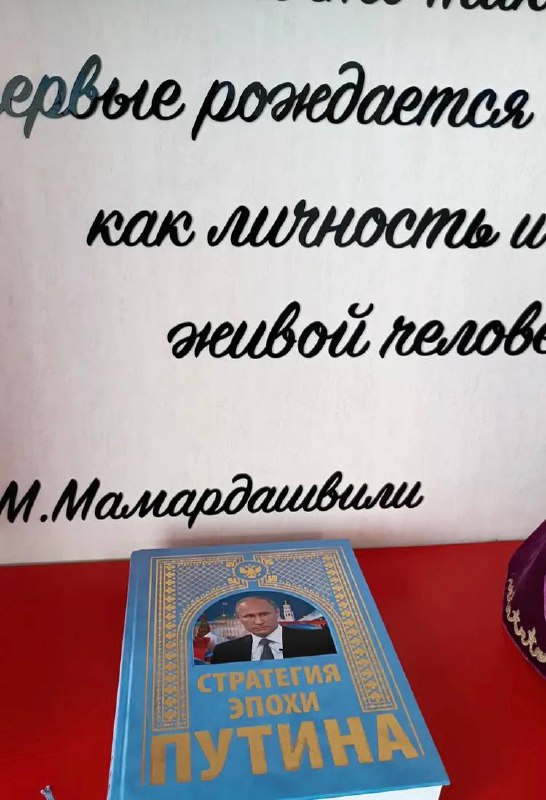 ервые рождается
как личность и
живой челове
М.Мамардашвили
СТРАТЕГИЯ
ЭПОХИ
ПУТИНА